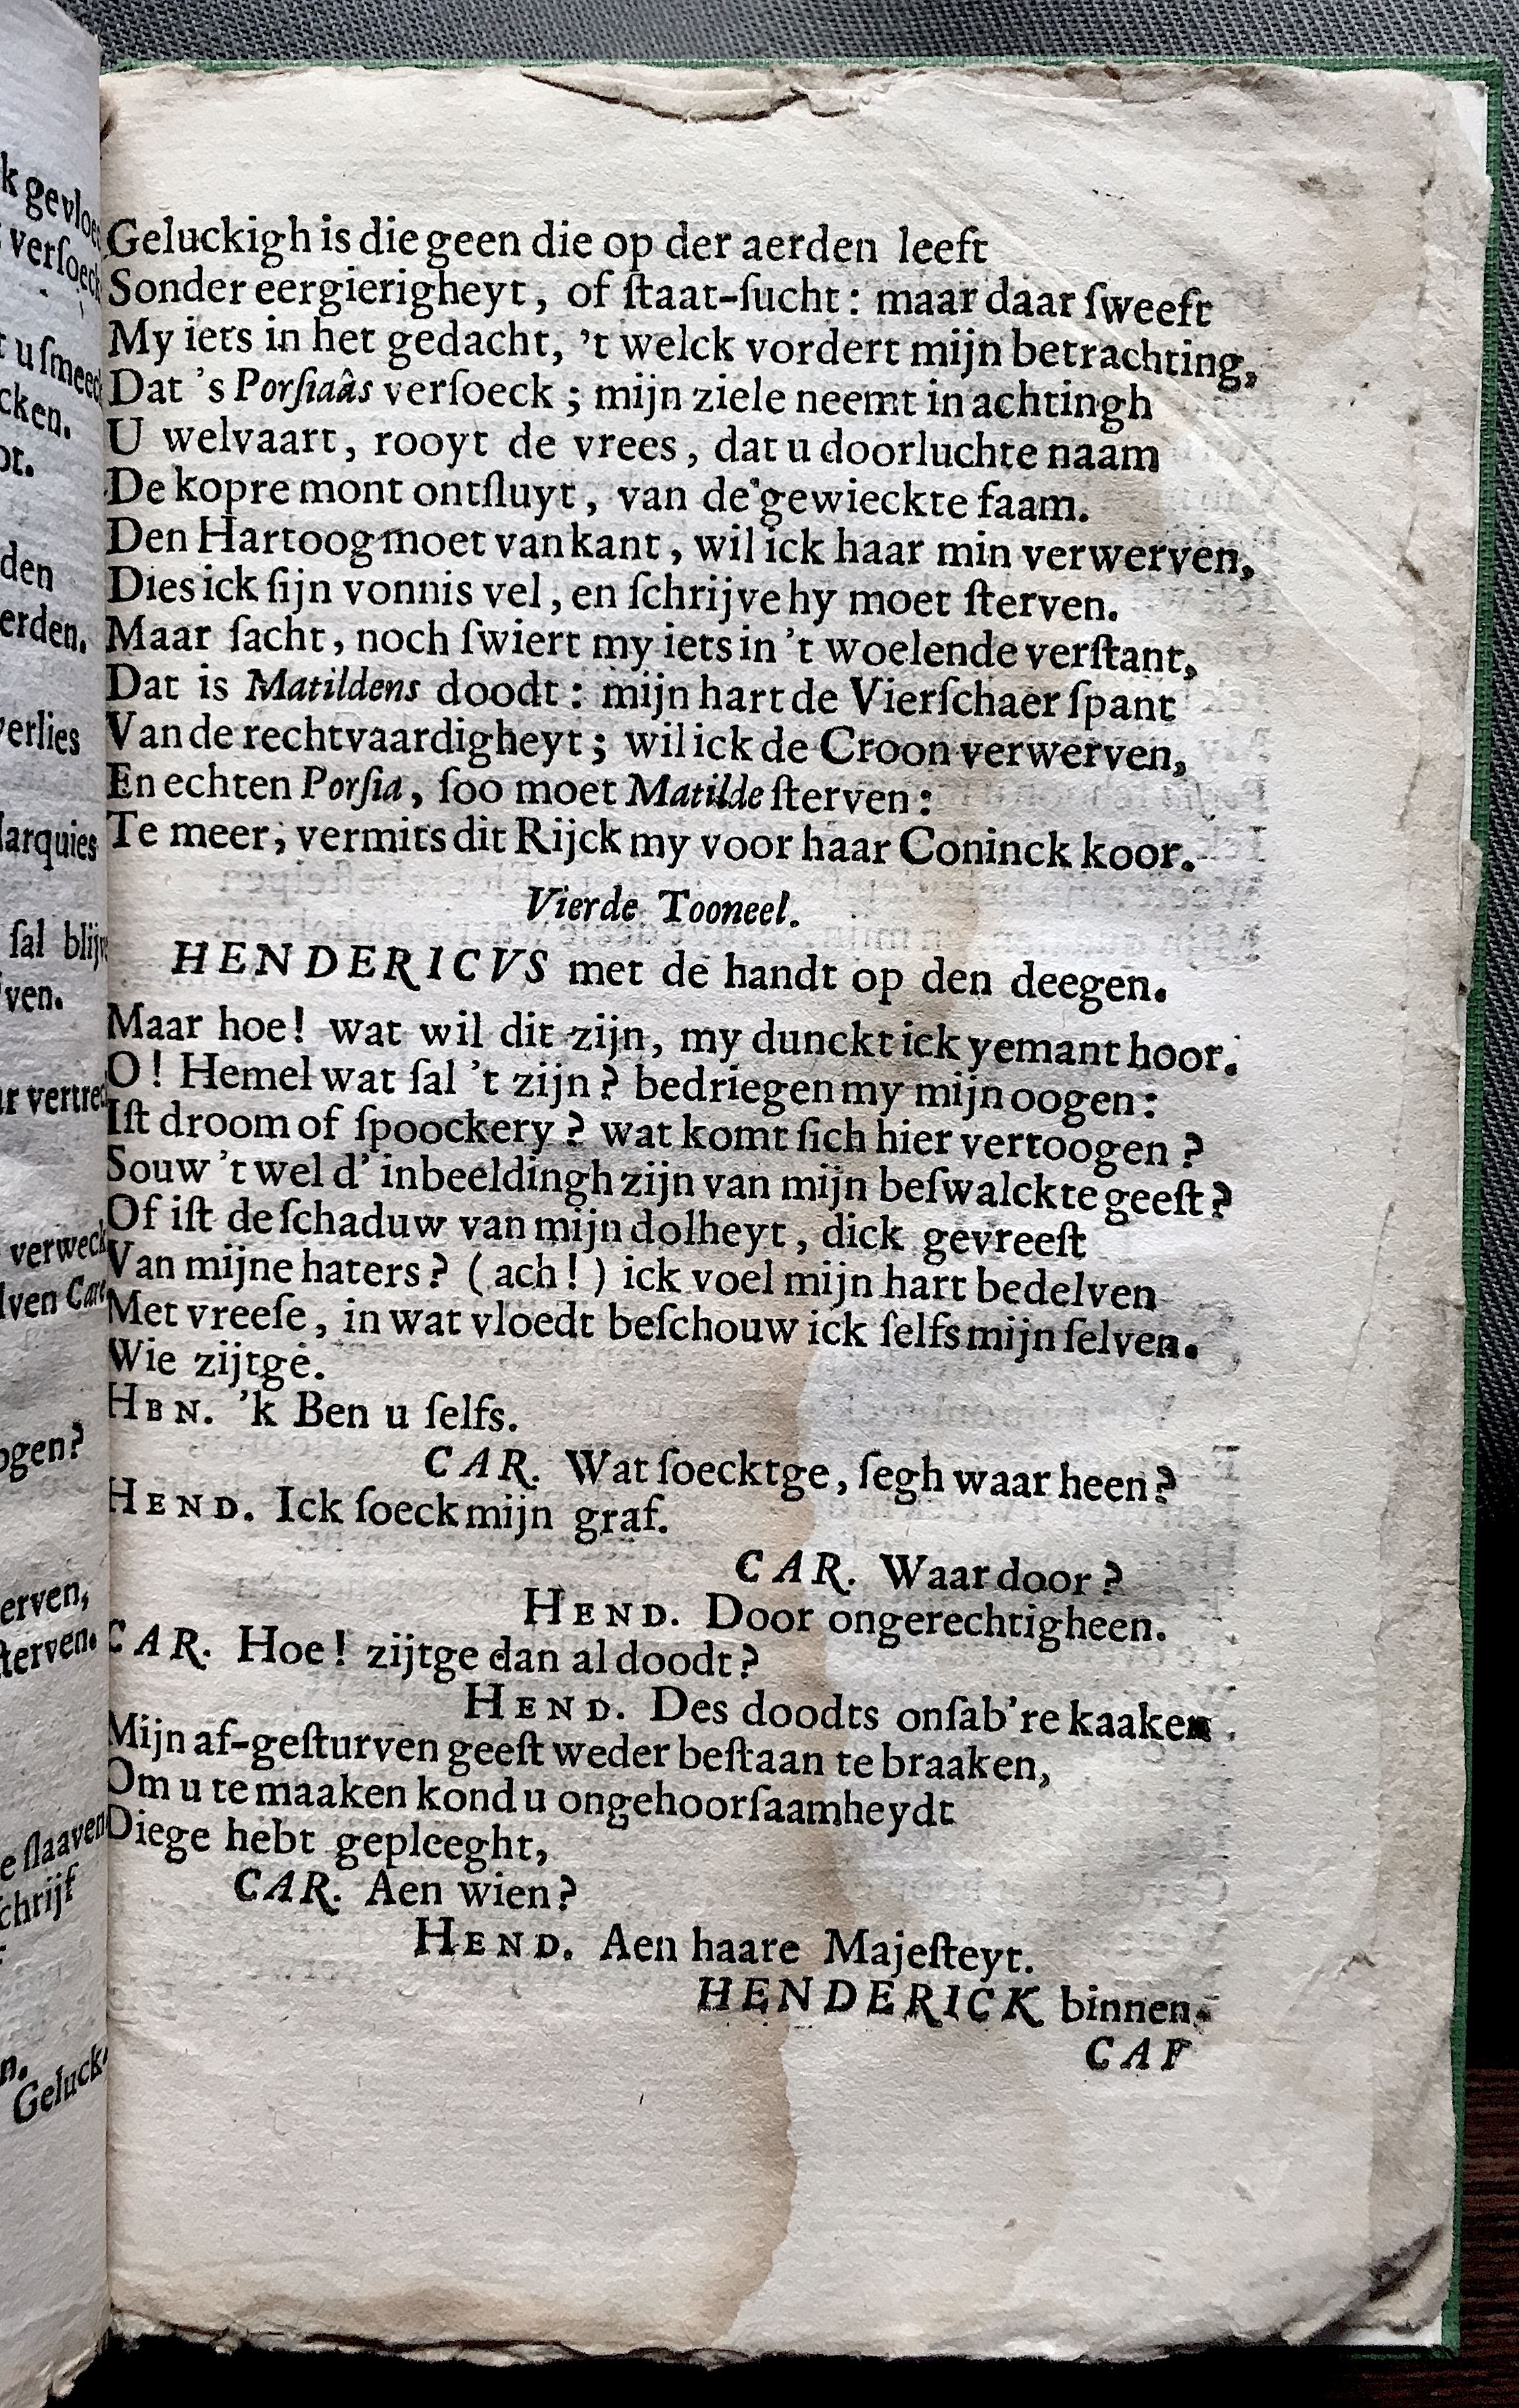 Geluckigh is die geen die op der aerden leeft
Sonder eergierigheyt, of ſtaat-ſucht: maar daar ſweeft
My iets in het gedacht, 't welck vordert mijn betrachting,
Dat 's Porſiaâs verſoeck; mijn ziele neemt in achtingh
U welvaart, rooyt de vrees, dat u doorluchte naam
De kopre mont ontſluyt, van de gewieckte faam.
Den Hartoog moet van kant, wil ick haar min verwerven,
Dies ick ſijn vonnis vel, en ſchrijve hy moet ſterven.
Maar ſacht, noch ſwiert my iets in 't woelende verſtant,
Dat is Matildens doodt: mijn hart de Vierſchaer ſpant
Van de rechtvaardigheyt; wil ick de Croon verwerven,
En echten Porſia, ſoo moet Matilde ſterven:
Te meer, vermits dit Rijck my voor haar Coninck koor.
Vierde Tooneel.
HENDERICVS met de handt op den deegen.
Maar hoe! wat wil dit zijn, my dunckt ick yemant hoor.
O! Hemel wat ſal 't zijn? bedriegen my mijn oogen:
Iſt droom of ſpoockery? wat komt ſich hier vertoogen?
Souw 't wel d' inbeeldingh zijn van mijn beſwalckte geeſt?
Of iſt de ſchaduw van mijn dolheyt, dick gevreeſt
Van mijne haters? (ach!) ick voel mijn hart bedelven
Met vreeſe, in wat vloedt beſchouw ick ſelfs mijn ſelven.
Wie zijtge.
HBN. 'k Ben u ſelfs.
CAR. Wat ſoecktge, ſegh waar heen?
HEND. Ick ſoeck mijn graf.
CAR. Waar door?
HEND. Door ongerechtigheen.
CAR. Hoe! zijtge dan al doodt?
HEND. Des doodts onſab're kaaken.
Mijn af-geſturven geeſt weder beſtaan te braaken,
Om u te maaken kond u ongehoorſaamheydt
Diege hebt gepleeght,
CAR. Aen wien?
HEND. Aen haare Majeſteyt.
HENDERICK binnen.
CAR